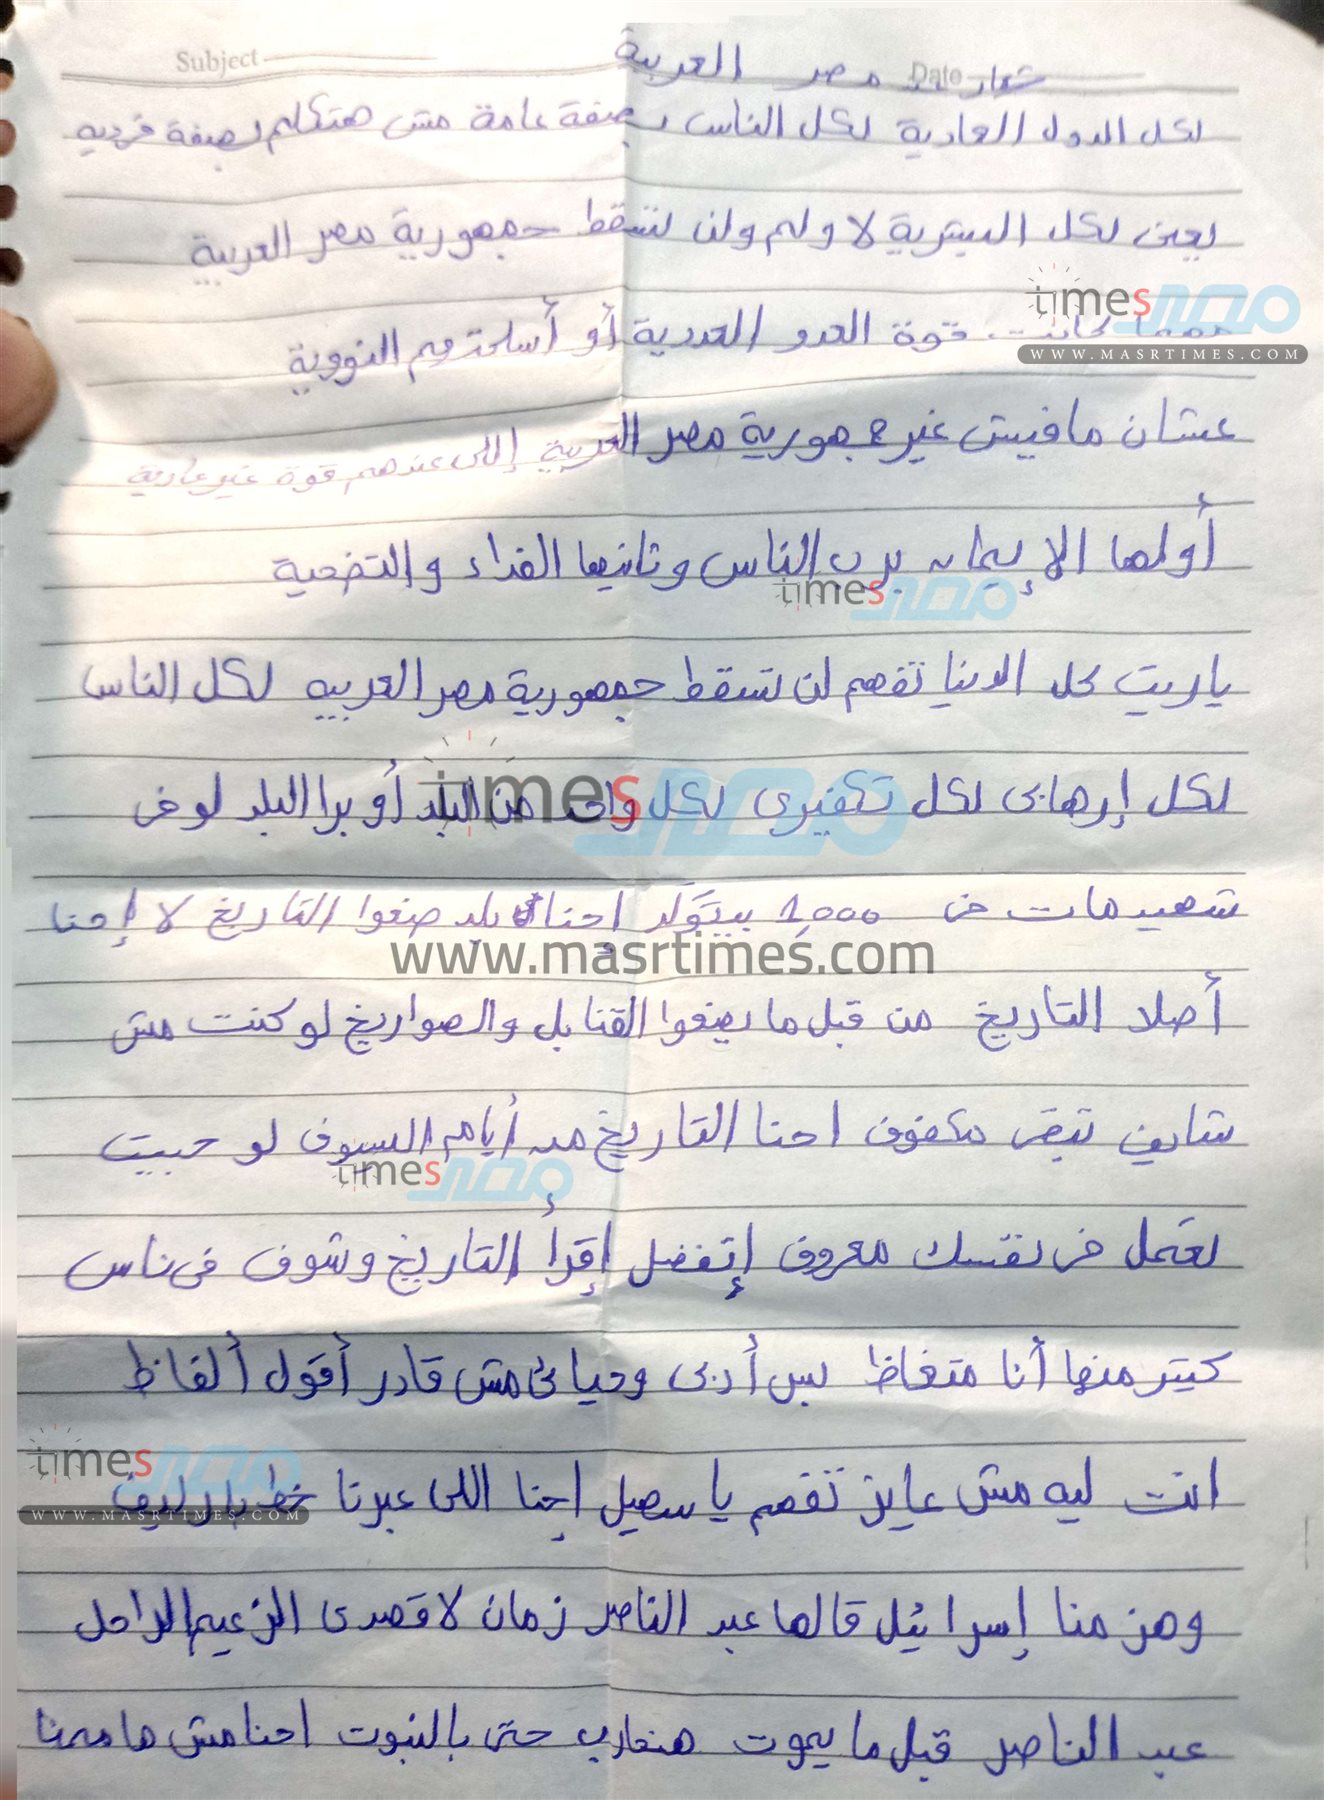 Subject
Date
شعار مصر العربية
لكل الدول العادية لكل الناس بصفة عامة مش هتكلم بصفة فرديه
يعنى لكل البشرية لا ولم ولن تسقط جمهورية مصر العربية
times مصر
مهما كانت قوة العدو العددية أو أسلحتهم النووية
WWW.MASRTIMES.COM
عشان مافيش غير جمهورية مصر العربية إللى عندهم قوة غير عادية
أولها الإيمان برب الناس وثانيها الفداء والتضحية
times مصر
ياريت كل الدنيا تفهم لن تسقط جمهورية مصر العربيه لكل الناس
لكل إرهابى لكل تكفيرى لكل واحد من البلد أو برا البلد لو فى
times مصر
شهيد مات فى 1,000 بيتولد إحنا بلد صنعوا التاريخ لا إحنا
www.masrtimes.com
أصلا التاريخ من قبل ما يصنعوا القنابل والصواريخ لو كنت مش
شايف تبقى مكفوف احنا التاريخ من أيام السيوف لو حبيت
times مصر
تعمل فى نفسك معروف إتفضل إقرأ التاريخ وشوف فى ناس
كتير منها أنا متغاظ بس أدبى وحيائى مش قادر أقول ألفاظ
times مصر
انت ليه مش عايز تفهم يا سهيل إحنا اللى عبرنا خط بارليف
WWW.MASRTIMES.COM
وهزمنا إسرائيل قالها عبد الناصر زمان لا قصدى الزعيم الراحل
عبد الناصر قبل ما يموت هنحارب حتى بالنبوت احنا مش هاممنا